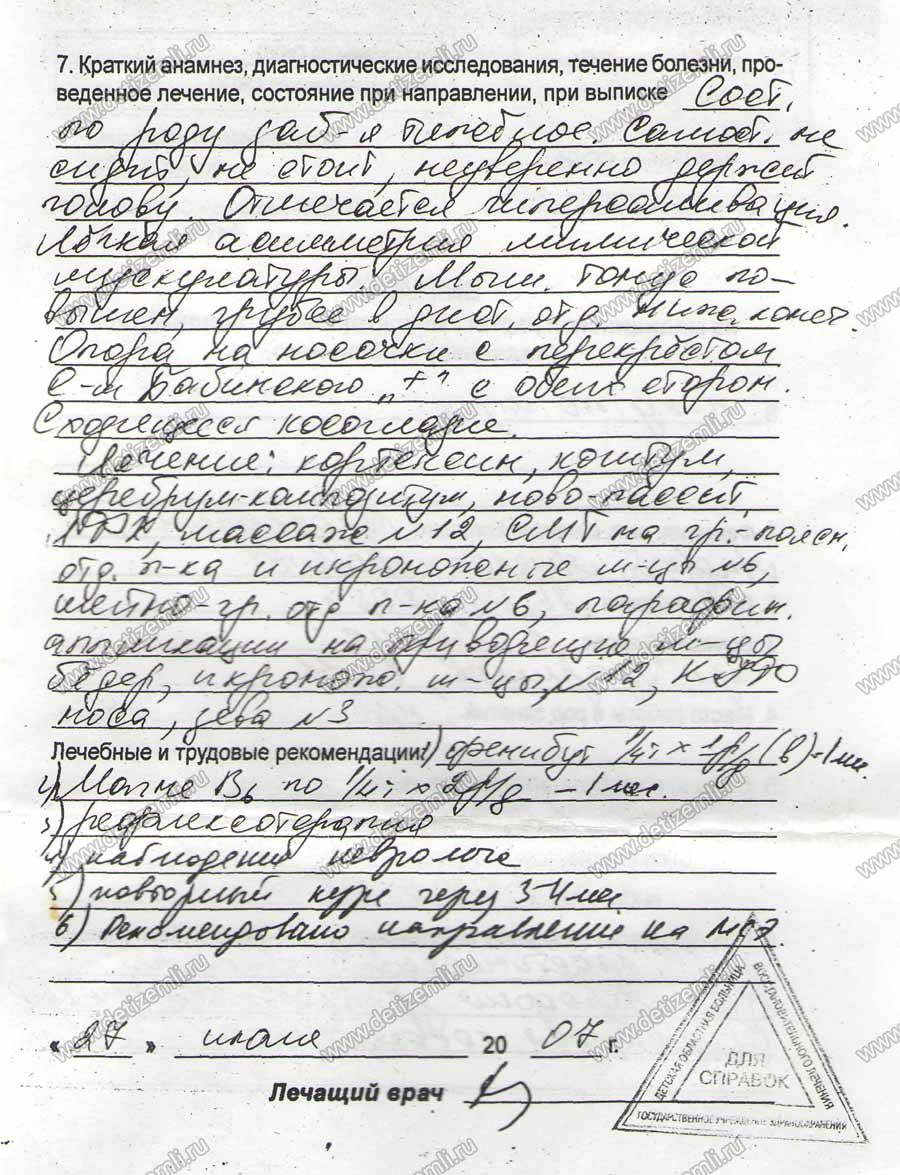 7. Краткий анамнез, диагностические исследования, течение болезни, про-
веденное лечение, состояние при направлении, при выписке Сост.
по роду заб-я тяжелое. Самост. не
сидит, не стоит, неуверенно держит
голову. Отмечается гиперсаливация.
Лёгкая асимметрия мимической
мускулатуры. Мыш. тонус по-
вышен, грубее в дист. отд. нижн. конеч.
Опора на носочки с перекрёстом
С-м Бабинского "+" с обеих сторон.
Сходящееся косоглазие.
Лечение: кортексин, когитум,
церебрум-композитум, ново-пассит,
ЛФК, массаж №12, СМТ на гр.-поясн.
отд. п-ка и икроножные м-цы №6,
шейно-гр. отд п-ка №6, парафин.
аппликации на приводящие м-цы
бедер, икронож. м-цы, КУФО
носа, зева №3
Лечебные и трудовые рекомендации: 1) фенибут 1/4т х 1 р/д (в) - 1 мес.
2) Магне В6 по 1/4т х 2 р/д - 1 мес.
3) рефлексотерапия
4) наблюдение невролога
5) повторный курс через 3-4 мес
6) Рекомендовано направление на МСЭ.
« 27 » июля 20 07 г.
Лечащий врач
ДЕТСКАЯ ОБЛАСТНАЯ БОЛЬНИЦА
ВОССТАНОВИТЕЛЬНОГО ЛЕЧЕНИЯ
ГОСУДАРСТВЕННОЕ УЧРЕЖДЕНИЕ ЗДРАВООХРАНЕНИЯ
ДЛЯ
СПРАВОК
www.detizemli.ru